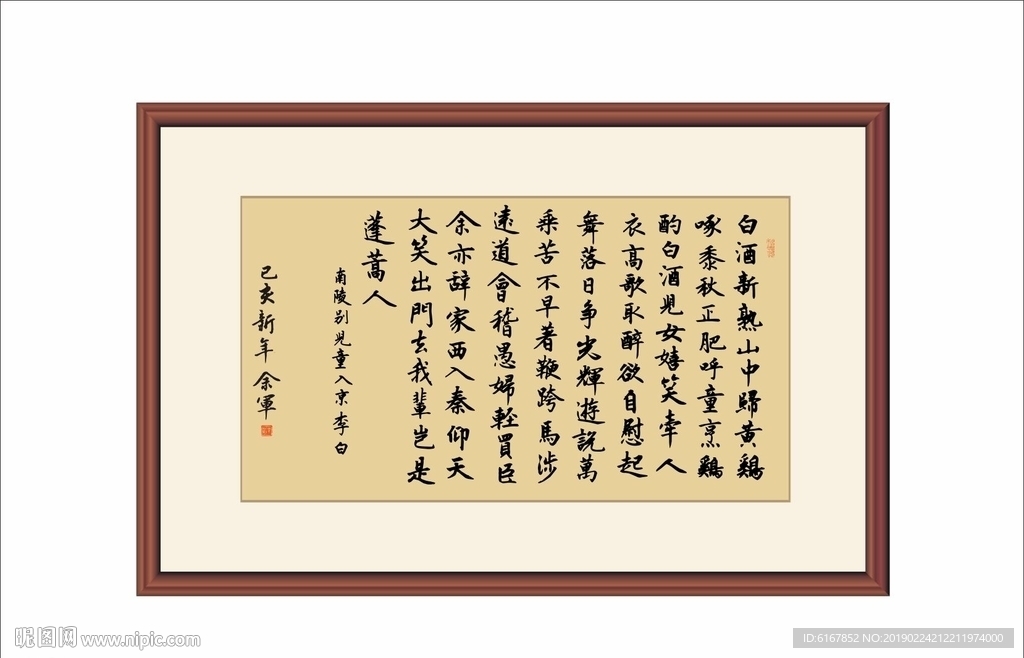 白酒新熟山中歸黃鷄
啄黍秋正肥呼童烹鷄
酌白酒児女嬉笑牽人
衣高歌取醉欲自慰起
舞落日争光輝遊説萬
乘苦不早著鞭跨馬涉
遠道會稽愚婦輕買臣
余亦辞家西入秦仰天
大笑出門去我輩岂是
蓬蒿人
南陵别児童入京李白
己亥新年余軍
昵图网 www.nipic.com
ID:6167852 NO:20190224212211974000